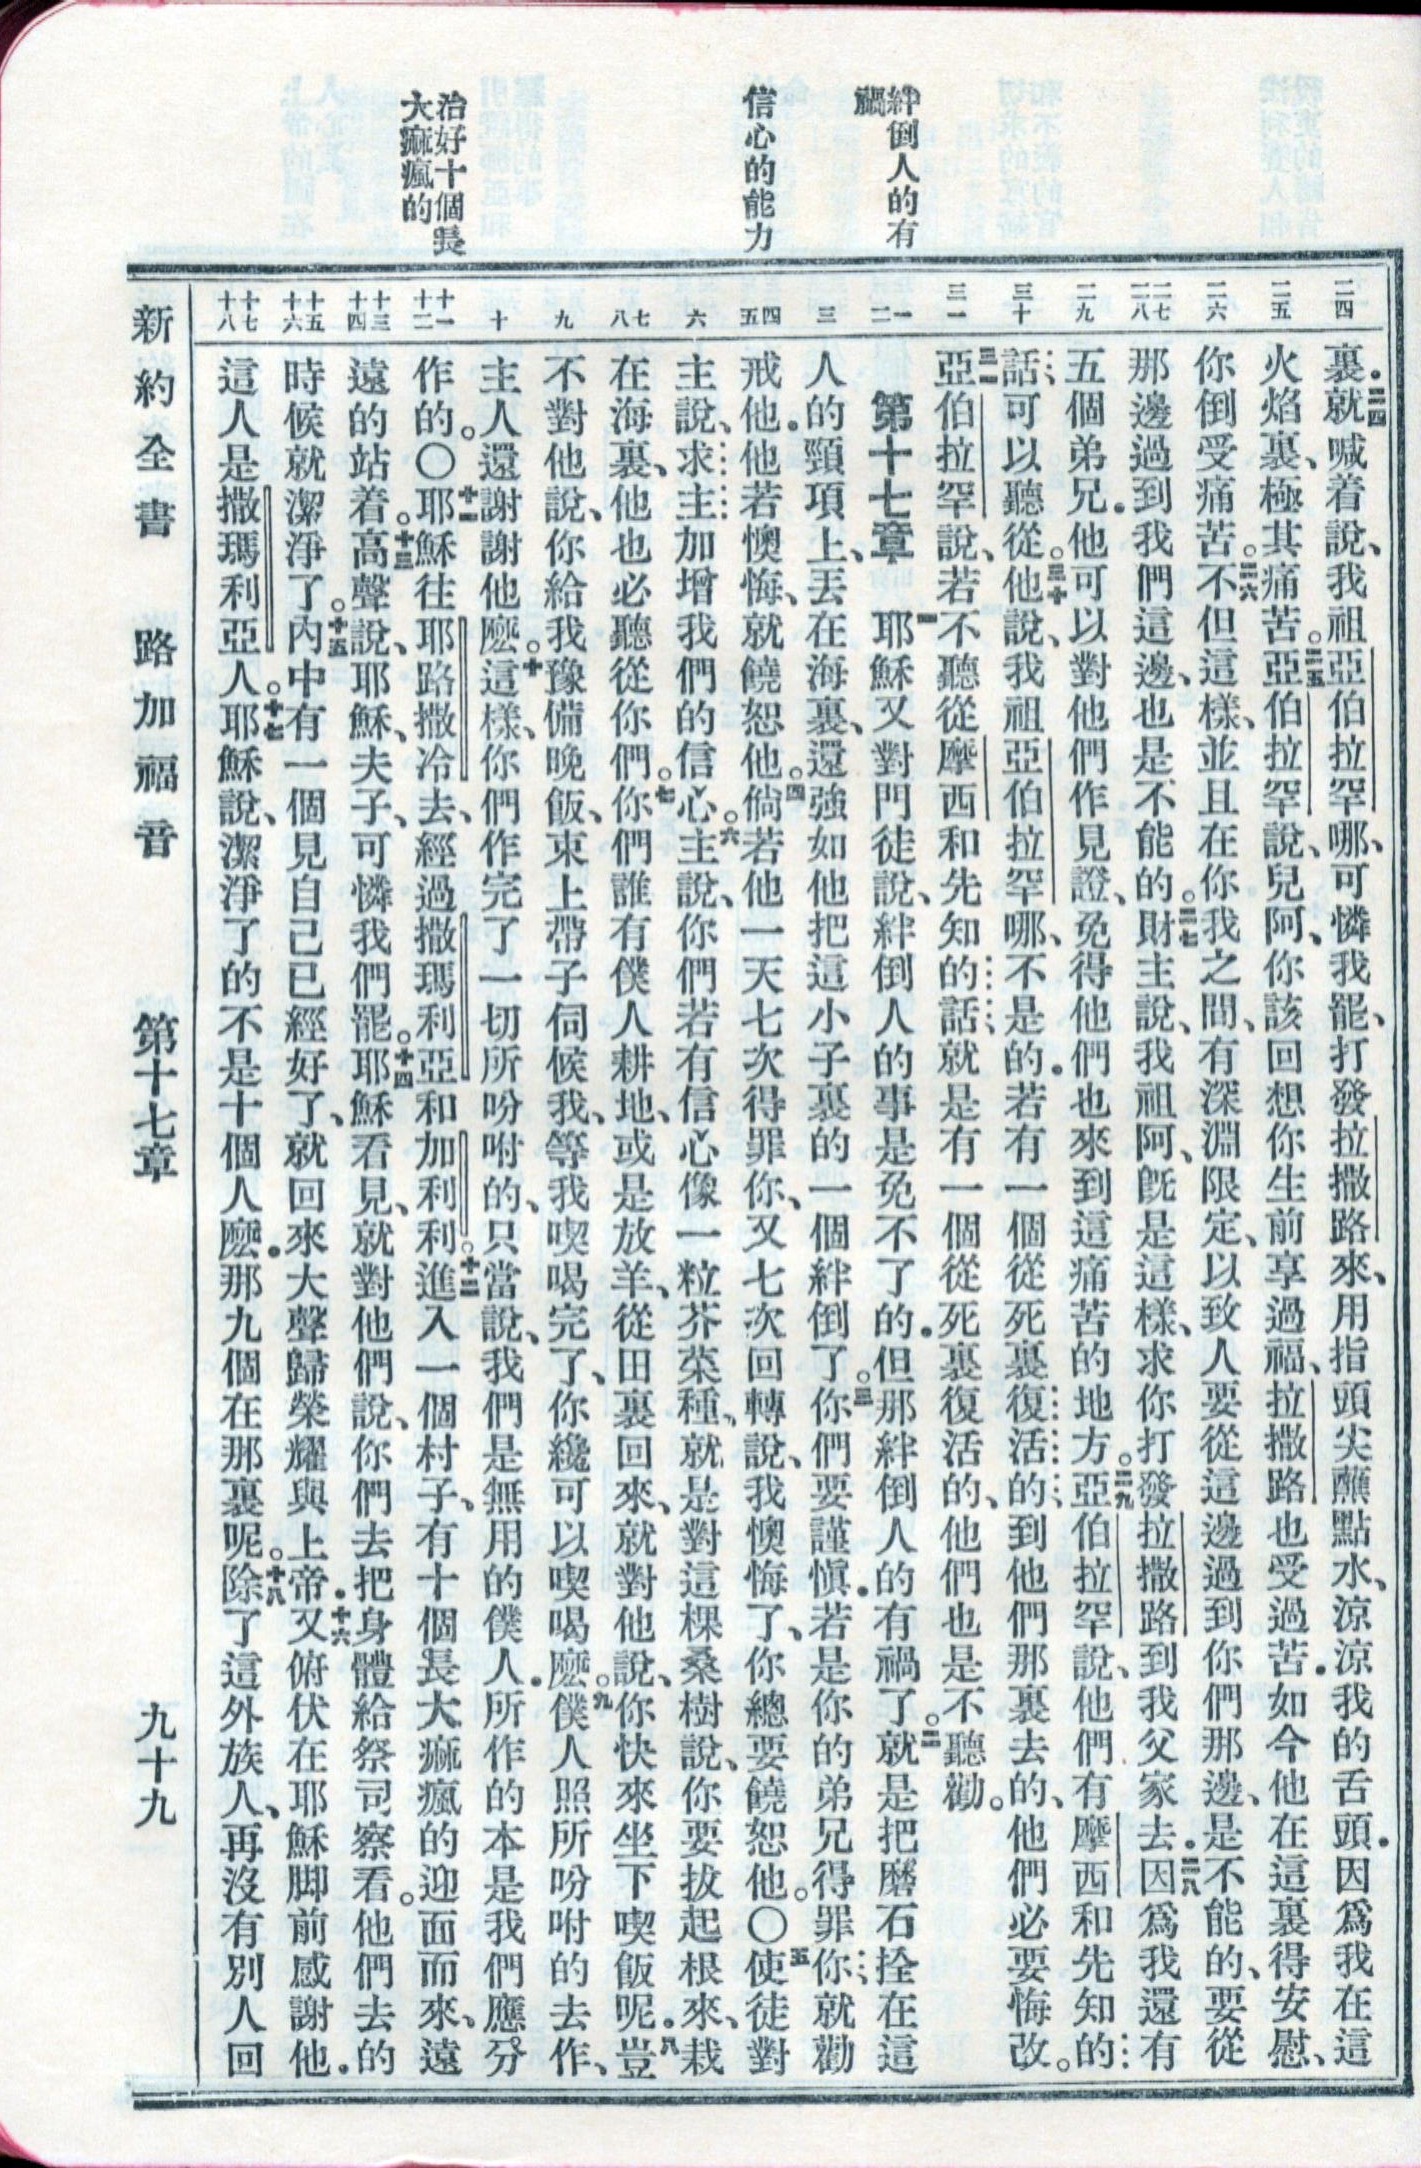 絆倒人的有
禍
信心的能力
治好十個長
大痲瘋的
二四
二五
二六
二七
二八
二九
三十
三一
一
二
三
四
五
六
七
八
九
十
十一
十二
十三
十四
十五
十六
十七
十八
裏.二四就喊着說、我祖亞伯拉罕哪、可憐我罷、打發拉撒路來、用指頭尖蘸點水、涼涼我的舌頭.因爲我在這
火焰裏、極其痛苦。二五亞伯拉罕說、兒阿、你該回想你生前享過福、拉撒路也受過苦.如今他在這裏得安慰、
你倒受痛苦。二六不但這樣、並且在你我之間、有深淵限定、以致人要從這邊過到你們那邊、是不能的、要從
那邊過到我們這邊、也是不能的。二七財主說、我祖阿、旣是這樣、求你打發拉撒路到我父家去.二八因爲我還有
五個弟兄.他可以對他們作見證、免得他們也來到這痛苦的地方。二九亞伯拉罕說、他們有摩西和先知的
話、可以聽從。三十他說、我祖亞伯拉罕哪、不是的.若有一個從死裏復活的、到他們那裏去的、他們必要悔改。
三一亞伯拉罕說、若不聽從摩西和先知的話、就是有一個從死裏復活的、他們也是不聽勸。
第十七章 一耶穌又對門徒說、絆倒人的事是免不了的.但那絆倒人的有禍了。二就是把磨石拴在這
人的頸項上、丟在海裏、還強如他把這小子裏的一個絆倒了。三你們要謹愼.若是你的弟兄得罪你、就勸
戒他.他若懊悔、就饒恕他。四倘若他一天七次得罪你、又七次回轉說、我懊悔了、你總要饒恕他。〇五使徒對
主說、求主加增我們的信心。六主說、你們若有信心像一粒芥菜種、就是對這棵桑樹說、你要拔起根來、栽
在海裏、他也必聽從你們。七你們誰有僕人耕地、或是放羊、從田裏回來、就對他說、你快來坐下喫飯呢.八豈
不對他說、你給我豫備晚飯、束上帶子伺候我、等我喫喝完了、你纔可以喫喝麽。九僕人照所吩咐的去作、
主人還謝謝他麽。十這樣、你們作完了一切所吩咐的、只當說、我們是無用的僕人.所作的本是我們應分
作的。〇十一耶穌往耶路撒冷去、經過撒瑪利亞和加利利。十二進入一個村子、有十個長大痲瘋的迎面而來、遠
遠的站着。十三高聲說、耶穌、夫子、可憐我們罷。十四耶穌看見、就對他們說、你們去把身體給祭司察看。他們去的
時候就潔淨了。十五內中有一個見自己已經好了、就回來大聲歸榮耀與上帝.十六又俯伏在耶穌脚前感謝他.
這人是撒瑪利亞人。十七耶穌說、潔淨了的不是十個人麽.那九個在那裏呢。十八除了這外族人、再沒有別人回
新約全書 路加福音 第十七章 九十九